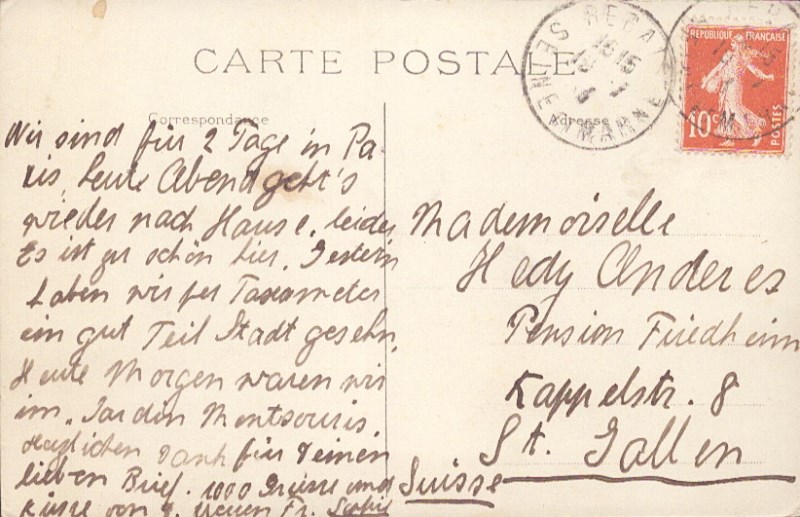 CARTE POSTALE
Correspondance
Adresse
REBAI
SEINE ET MARNE
REPUBLIQUE FRANÇAISE
10c
POSTES
Wir sind für 2 Tage in Pa-
ris, heute Abend geht's
wieder nach Hause, leider
Es ist zu schön hier. Gestern
haben wir per Taxameter
ein gut Teil Stadt gesehn,
Heute Morgen waren wir
im „Jardin Montsouris.
Herzlichen Dank für Deinen
lieben Brief. 1000 Grüsse und
Küsse von D. treuen Fr. Sophie
Mademoiselle
Hedy Anderes
Pension Friedheim
Kappelstr. 8
St. Gallen
Suisse